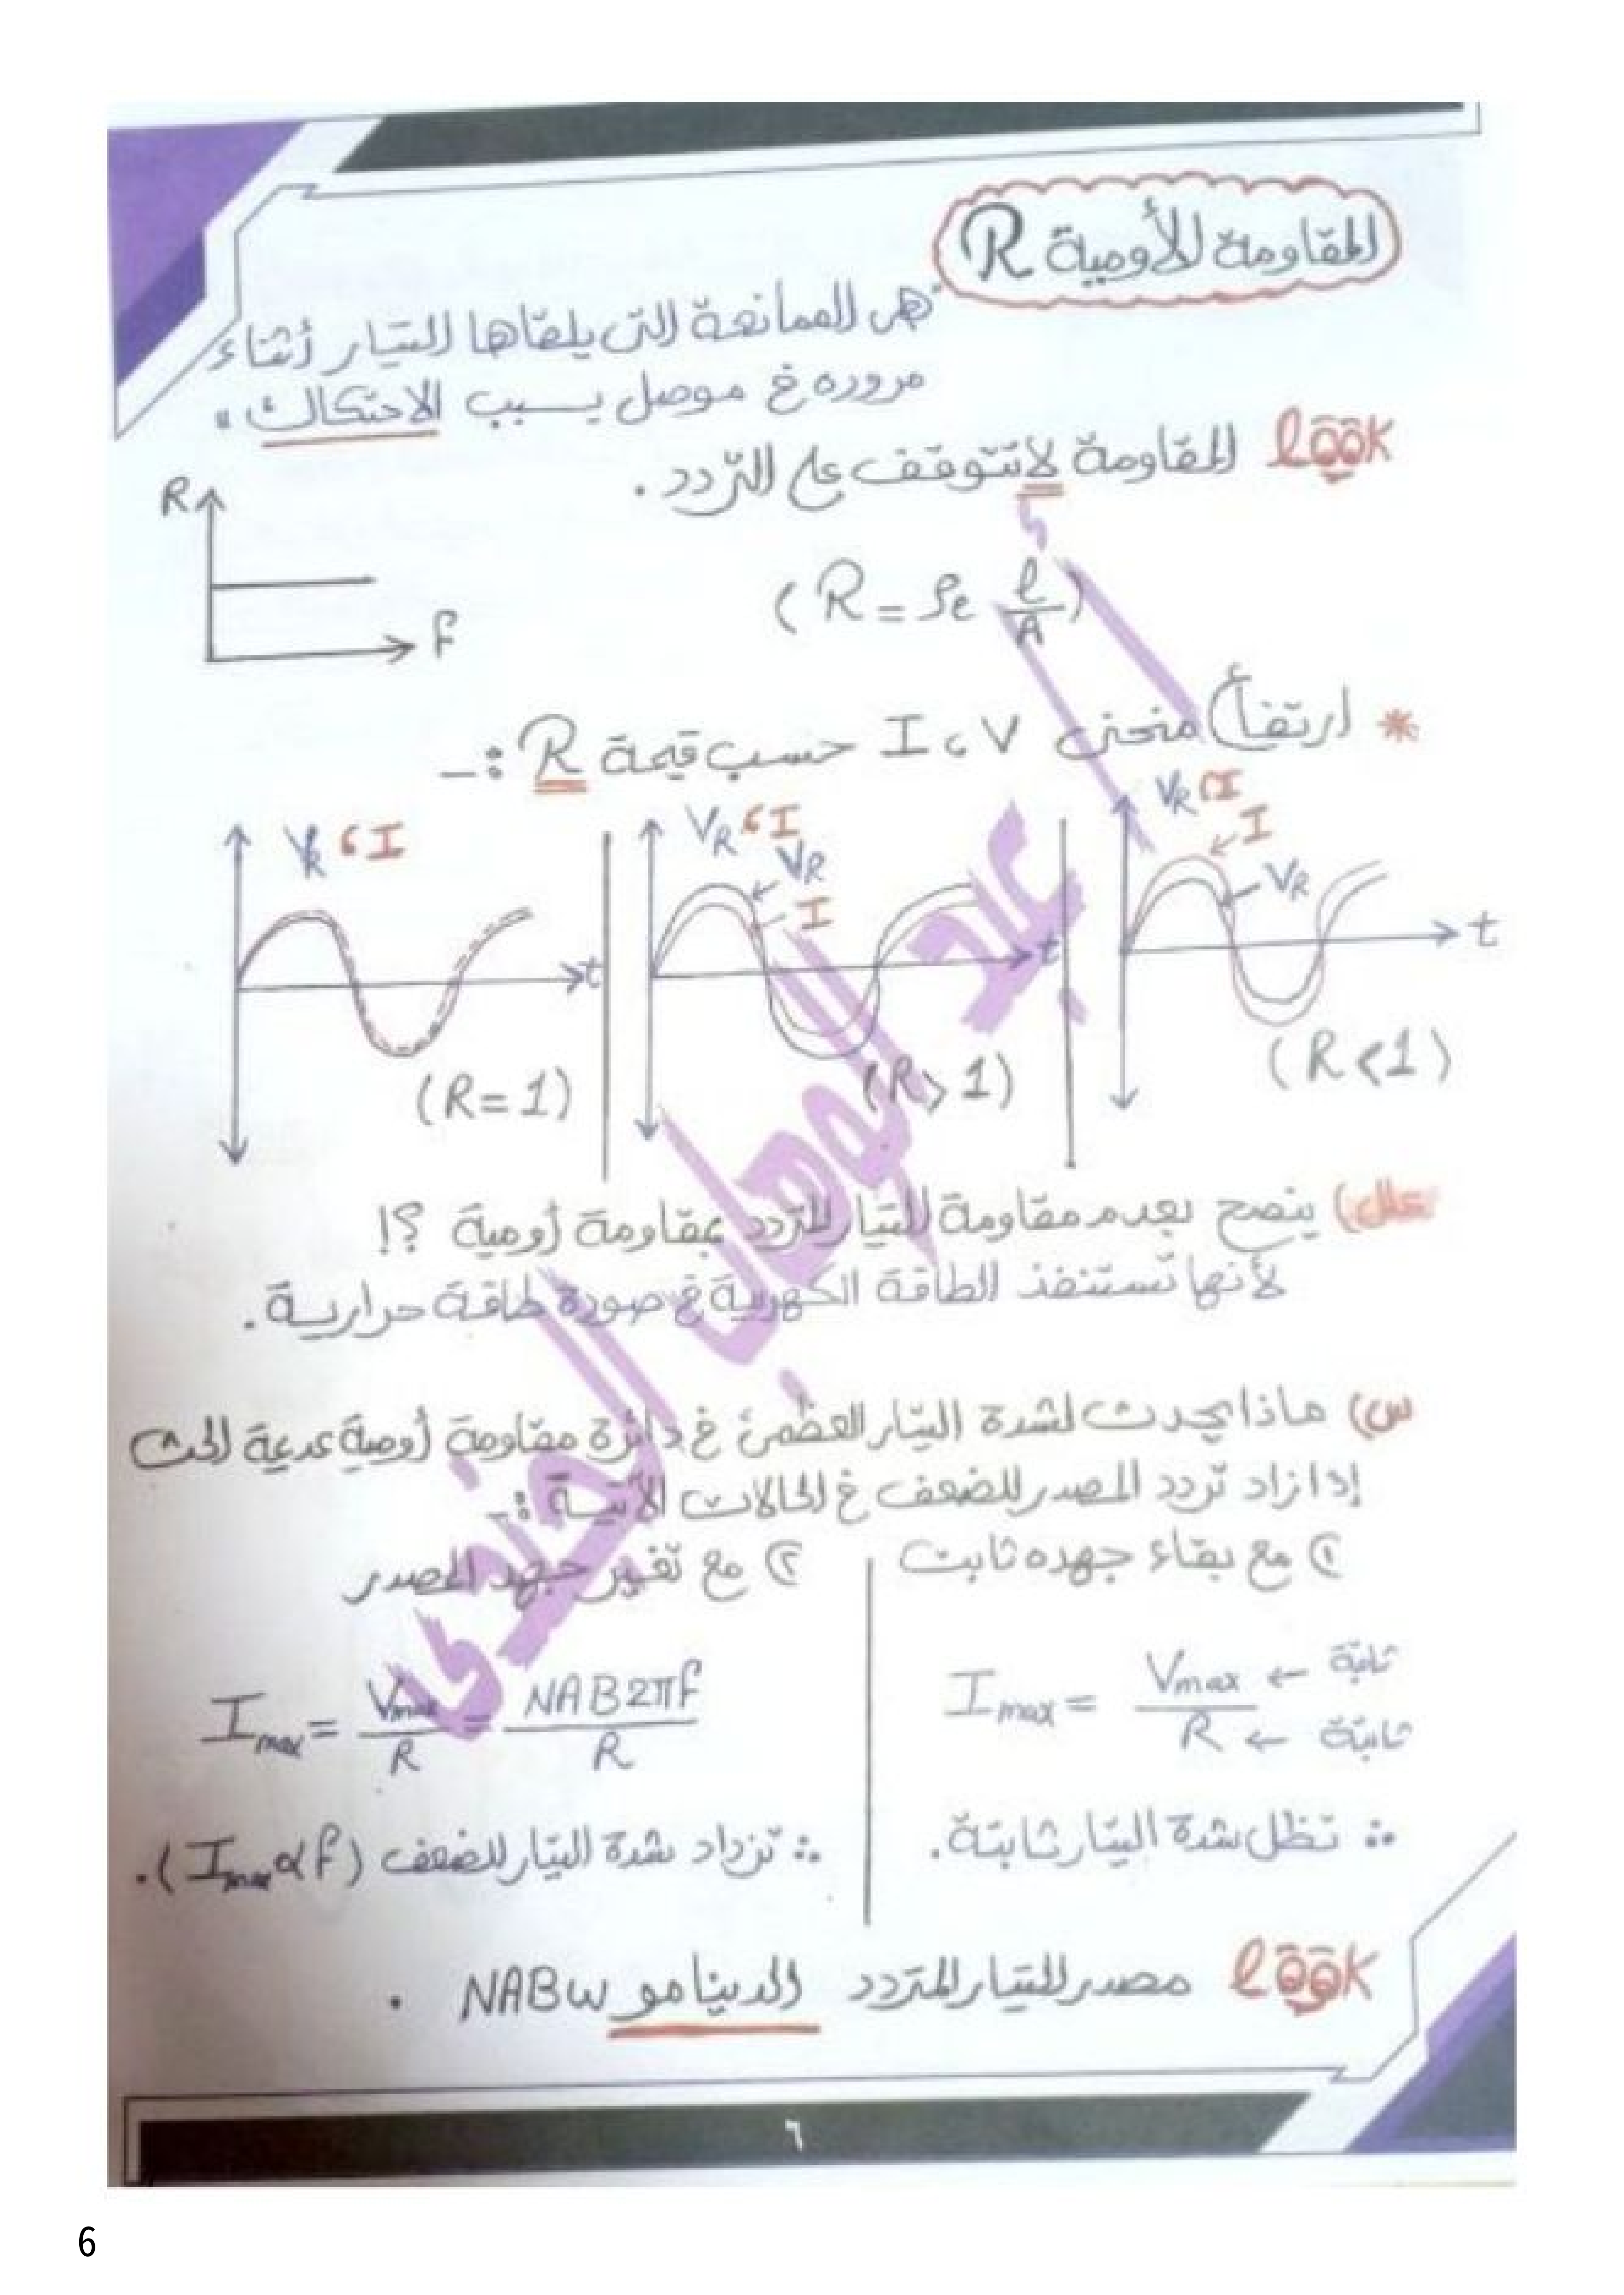 المقاومة الأومية R
"هى الممانعة التى يلقاها التيار أثناء
مروره فى موصل بسبب الاحتكاك"
look المقاومة لا تتوقف على التردد.
R
f
(R = ρe l/A)
* ارتفاع منحنى I ، V حسب قيمة R :-
VR ، I
I
VR
t
(R < 1)
VR ، I
VR
I
t
(R > 1)
VR ، I
t
(R = 1)
علل) ينصح بعدم مقاومة التيار المتردد بمقاومة أومية ؟!
لأنها تستنفذ الطاقة الكهربية فى صورة طاقة حرارية.
س) ماذا يحدث لشدة التيار العظمى فى دائرة مقاومة أومية عديمة الحث
إذا زاد تردد المصدر للضعف فى الحالات الآتية :-
١) مع بقاء جهده ثابت
Imax = Vmax / R
ثابتة
ثابتة
∴ تظل شدة التيار ثابتة.
٢) مع تغير جهد المصدر
Imax = Vmax / R = NAB2πf / R
∴ تزداد شدة التيار للضعف (Imax α f).
look مصدر التيار المتردد الدينامو NABw .
عبد الوهاب الجندى
٦
6